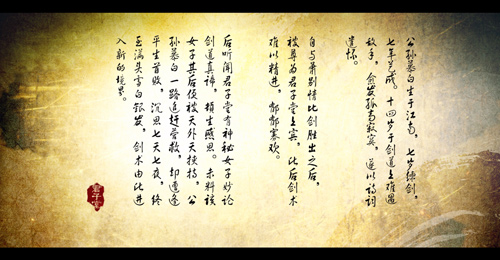 公孙慕白生于江南，七岁练剑，
七年乃成。十四岁于剑道上难遇
敌手，愈发孤高寂寞，遂以诗词
遣怀。
自与萧别情比剑胜出之后，
被尊为君子堂上宾，此后剑术
难以精进，郁郁寡欢。
后听闻君子堂有神秘女子妙论
剑道真谛，顿生感思。未料该
女子其后便被天外天挟持，公
孙慕白一路追赶营救，却遭逢
平生首败，沉思七天七夜，终
至满头青白银发，剑术由此进
入新的境界。
君子堂